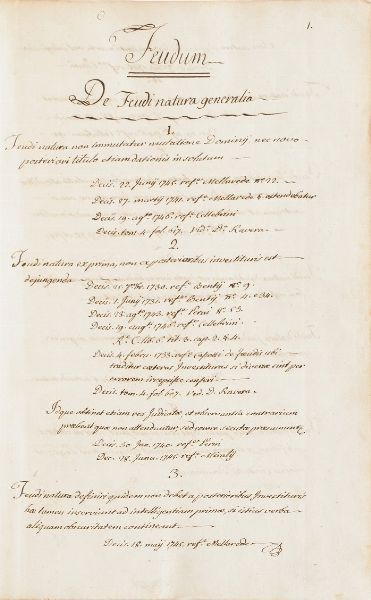 1.
Feudum
De Feudi natura generalia
1.
Feudi natura non immutatur mutatione Dominij nec novo
posteriori titulo etiam dationis in solutum
Decis. 22. Junij 1746. refte. Mellarede nº. 12.
Decis. 27. martij 1741. refte. Mellarede §. ostendebatur
Decis. 19. agti. 1746. refte.
Decis. tom. 4. fol. 617. vid. D. Ravera.
2.
Feudi natura ex prima, non ex posterioribus investituris est
dijungenda
Decis. 1730. refte. nº. 9.
Decis. 1. Junij 1731. refte. nº. 4. e 34.
Decis. 23. agti. 1743. refte. Peris nº. 53.
Decis. 19. augti. 1746. refte.
lib. 6. tit. 3. cap. 2. §. 4.
Decis. 4. febru. 1733. refte. de Feudis ubi
traditur cæteras Investituras si diversæ sint per
errorem irrepsisse censeri
Decis. tom. 4. fol. 607. vid. D. Ravera.
Idque obtinet etiam res Judicatæ, et observantia contrarium
præbeat quæ non attenduntur, sed secutæ præsumuntur
Decis. 30. Jan. 1740. refte. Peris
Dec. 28. Janu. 1741. refte.
3.
Feudi natura definiri quidem non debet a posterioribus Investituris
hæ tamen inserviunt ad intelligentiam primæ, si istius verba
aliquam obscuritatem contineant
Decis. 12. maij 1745. refte. Mellarede